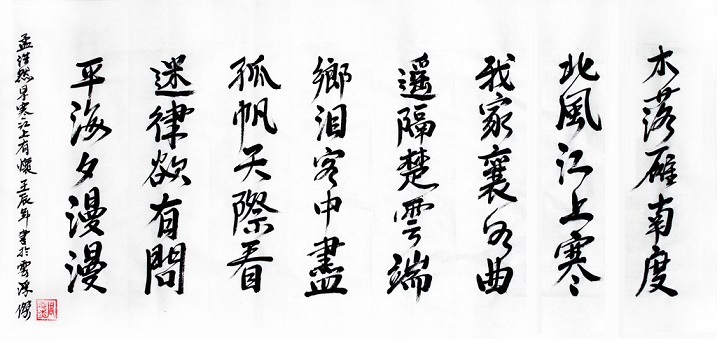 木落雁南度
北風江上寒
我家襄水曲
遙隔楚雲端
鄉泪客中盡
孤帆天際看
迷律欲有問
平海夕漫漫
孟浩然早寒江上有懷 壬辰年書於雲深